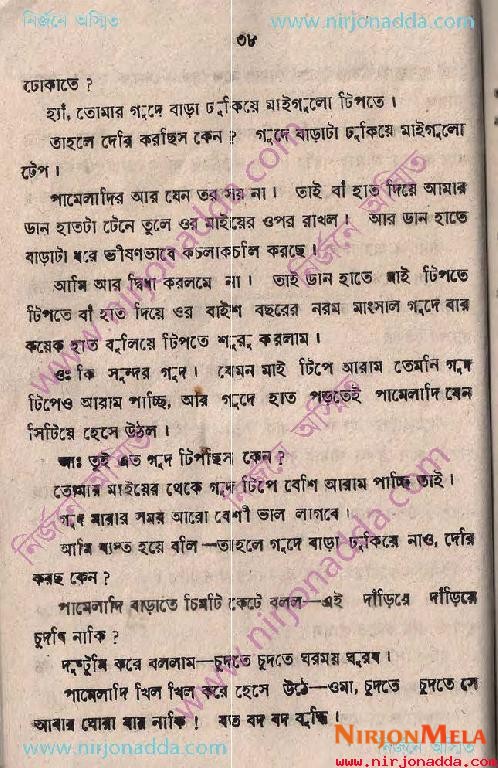 নির্জনে অস্মিত
www.nirjonadda.com
৩৮
ঢোকাতে ?
হ্যাঁ, তোমার গুদে বাড়া ঢুকিয়ে মাইগুলো টিপতে ।
তাহলে দেরি করছিস কেন ? গুদে বাড়াটা ঢুকিয়ে মাইগুলো
টেপ ।
পামেলাদির আর যেন তর সয় না । তাই বাঁ হাত দিয়ে আমার
ডান হাতটা টেনে তুলে ওর মাইয়ের ওপর রাখল । আর ডান হাতে
বাড়াটা ধরে ভীষণভাবে কচলাকচলি করছে ।
আমি আর দ্বিধা করলাম না । তাই ডান হাতে মাই টিপতে
টিপতে বাঁ হাত দিয়ে ওর বাইশ বছরের নরম মাংসাল গুদে বার
কয়েক হাত বুলিয়ে টিপতে শুরু করলাম ।
ওঃ কি সুন্দর গুদ । যেমন মাই টিপে আরাম তেমনি গুদ
টিপেও আরাম পাচ্ছি, আর গুদে হাত পড়তেই পামেলাদি যেন
সিটিয়ে হেসে উঠল ।
আঃ তুই এত গুদ টিপছিস কেন ?
তোমার মাইয়ের থেকে গুদ টিপে বেশি আরাম পাচ্ছি তাই ।
গুদ মারার সময় আরো বেশী ভাল লাগবে ।
আমি ব্যস্ত হয়ে বলি—তাহলে গুদে বাড়া ঢুকিয়ে নাও, দেরি
করছ কেন ?
পামেলাদি বাড়াতে চিমটি কেটে বলল—এই দাঁড়িয়ে দাঁড়িয়ে
চুদবি নাকি ?
দুষ্টুমি করে বললাম—চুদতে চুদতে ঘরময় ঘুরব ।
পামেলাদি খিল খিল করে হেসে উঠে—ওমা, চুদতে চুদতে সে
আবার ঘোরা যায় নাকি ! যত বদ বদ বুদ্ধি ।
www.nirjonadda.com
নির্জনে অস্মিত
NIRJONMELA
www.nirjonadda.com